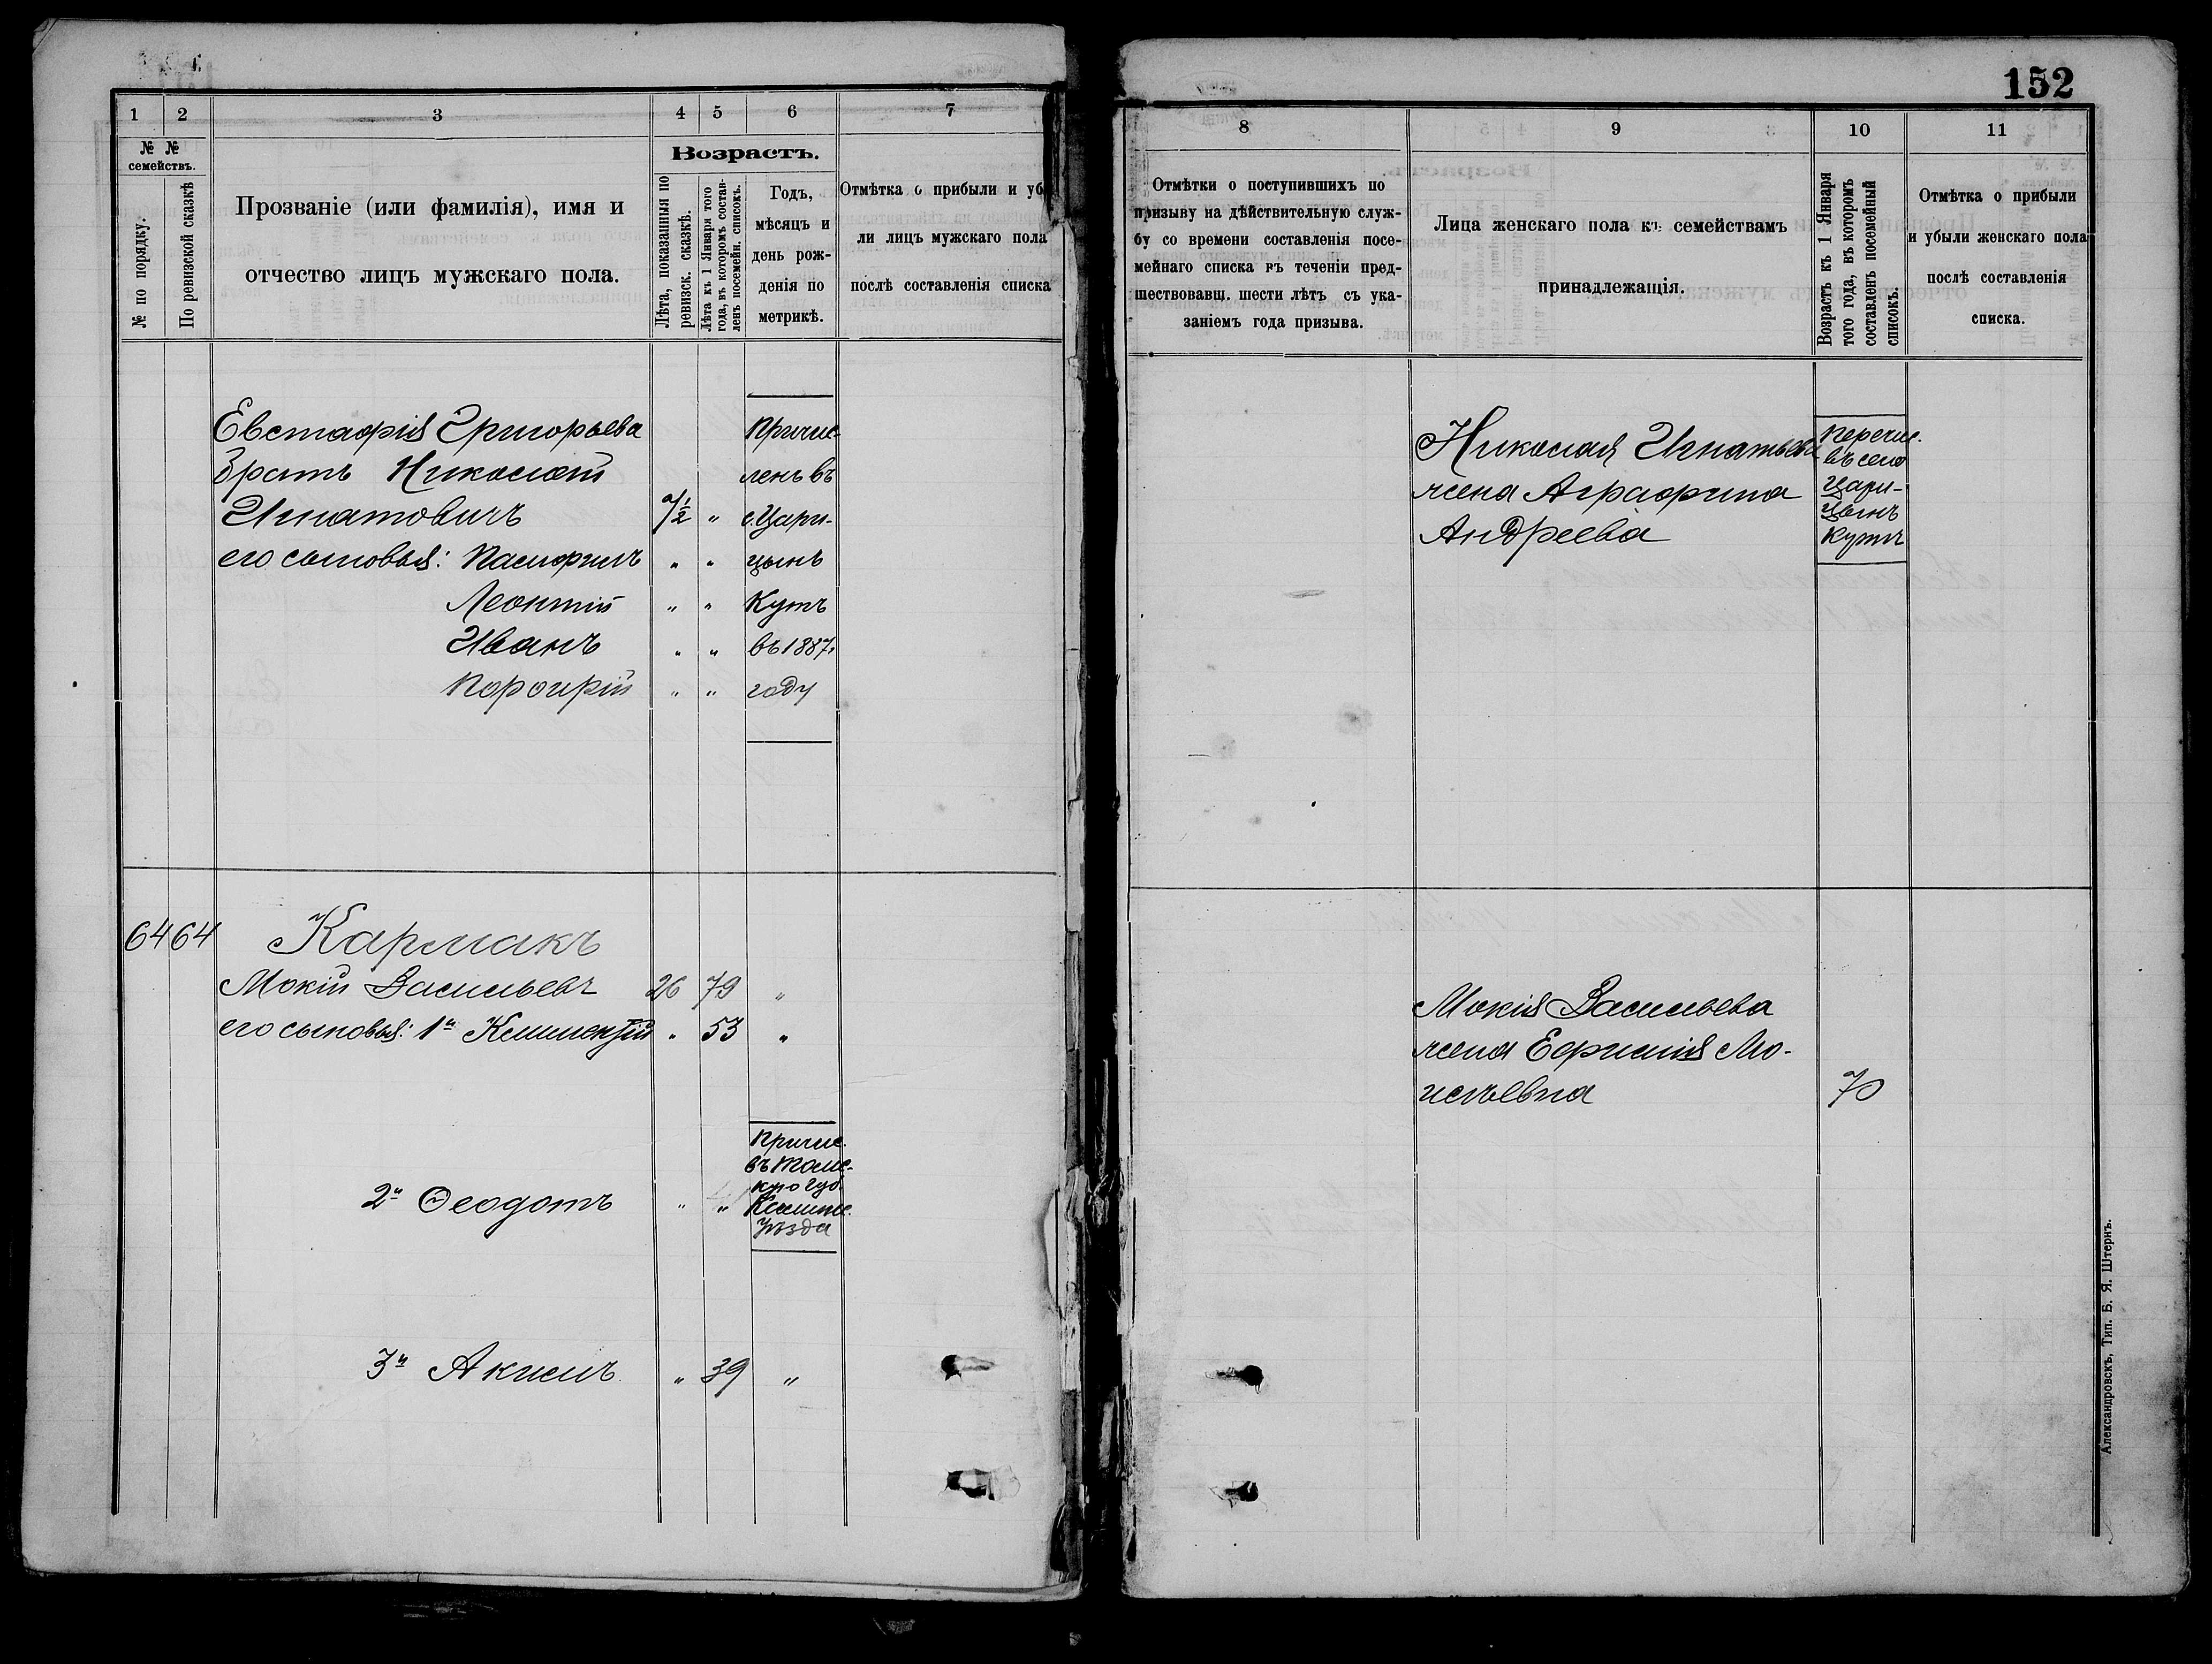 152
1 2 3 4 5 6 7
№ № семействъ.
№ по порядку.
По ревизской сказкѣ
Прозваніе (или фамилія), имя и
отчество лицъ мужскаго пола.
Возрастъ.
Лѣта, показанныя по
ревизск. сказкѣ.
Лѣта къ 1 Января того
года, въ которомъ состав-
ленъ посемейн. списокъ.
Годъ,
мѣсяцъ и
день рож-
денія по
метрикѣ.
Отмѣтка о прибыли и уб
ли лицъ мужскаго пола
послѣ составленія списка
Евстафія Григорьева
Братъ Николай
Игнатовичъ 7/½ "
его сыновья: Памфилъ " "
Леонтій " "
Иванъ " "
Порфирій " "
Причис-
ленъ въ
с. Цари-
цынъ
Кутъ
въ 1887.
году
64 64 Кармакъ
Мокій Васильевъ 26 79 "
его сыновья: 1й Климентій " 53 "
2й Ѳеодотъ " "
Причис.
въ Томс-
кую губ.
уѣзда
3й Акимъ " 39 "
8 9 10 11
Отмѣтки о поступившихъ по
призыву на дѣйствительную служ-
бу со времени составленія посе-
мейнаго списка въ теченіи пред-
шествовавщ. шести лѣтъ съ ука-
заніемъ года призыва.
Лица женскаго пола къ семействамъ
принадлежащія.
Возрастъ къ 1 Января
того года, въ которомъ
составленъ посемейный
списокъ.
Отмѣтка о прибыли
и убыли женскаго пола
послѣ составленія
списка.
Николая Игнатьева
жена Аграфина
Андреева
Перечис.
въ село
Цари-
цынъ
Кутъ
Мокія Васильева
жена Ефимія Мо-
исѣевна 70
Александровскъ, Тип. Б. Я. Штернъ.